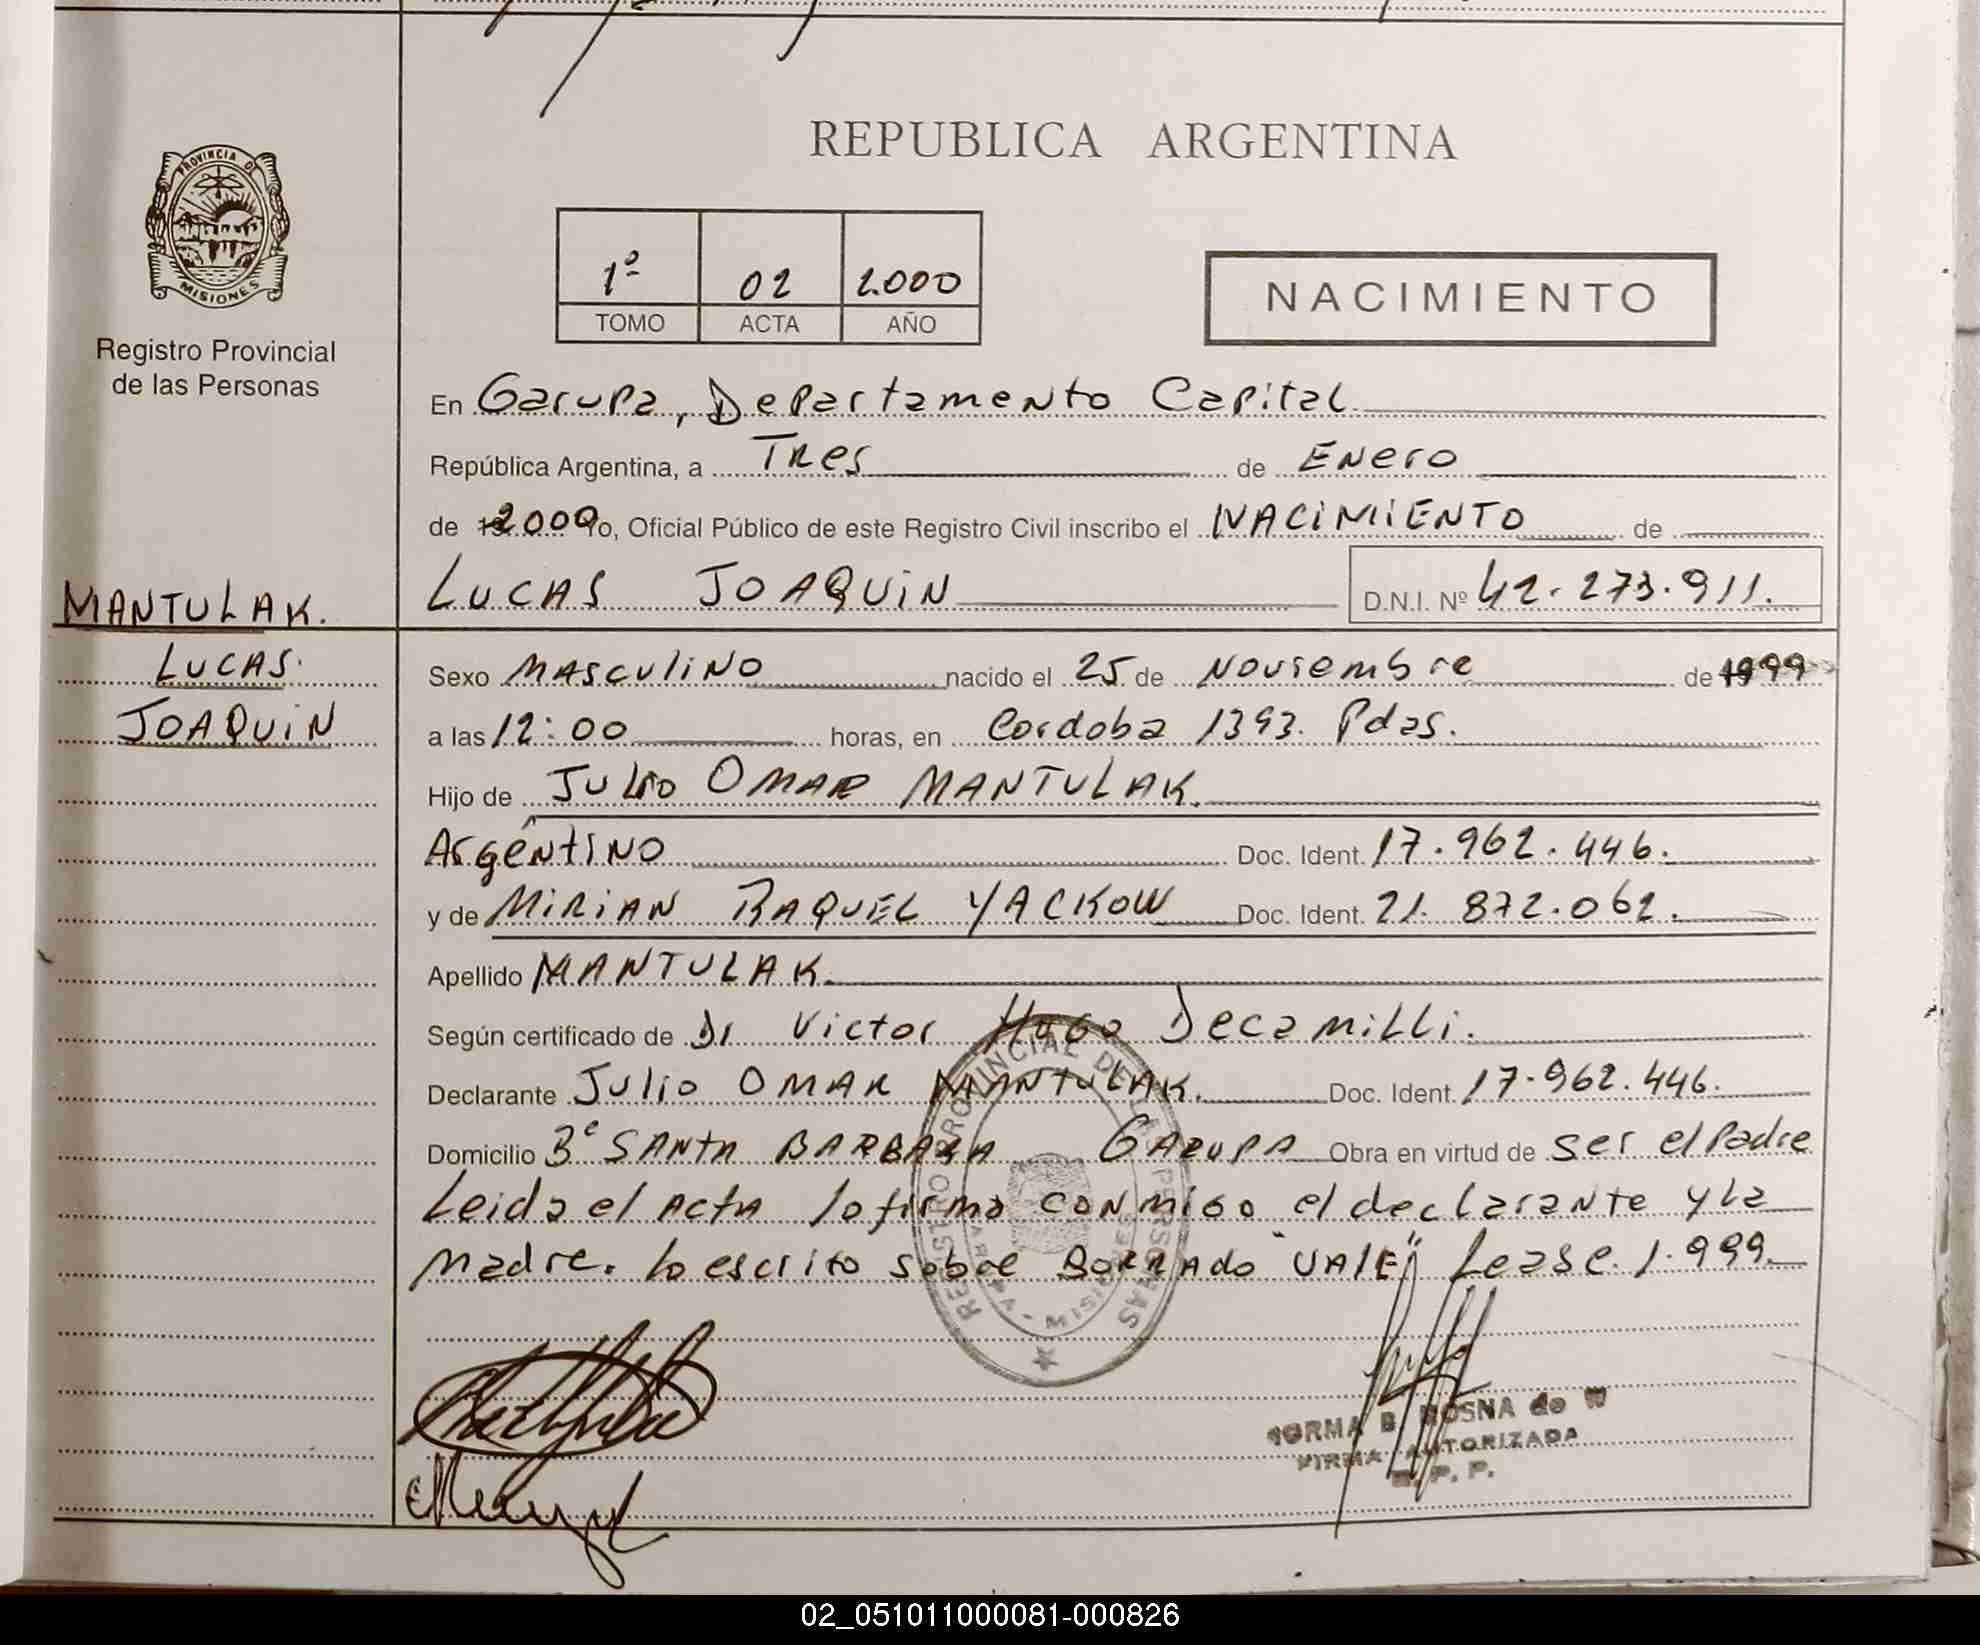 REPUBLICA ARGENTINA
PROVINCIA DE
MISIONES
Registro Provincial
de las Personas
1º 02 2.000
TOMO ACTA AÑO
NACIMIENTO
En Garupa, Departamento Capital
República Argentina, a Tres de Enero
de 2000 Yo, Oficial Público de este Registro Civil inscribo el NACIMIENTO de
LUCAS JOAQUIN D.N.I. Nº 42.273.911.
MANTULAK.
LUCAS.
JOAQUIN
Sexo MASCULINO nacido el 25 de Noviembre de 1999
a las 12:00 horas, en Cordoba 1393. Pdas.
Hijo de JULIO OMAR MANTULAK.
Argentino Doc. Ident. 17.962.446.
y de MIRIAN RAQUEL YACKOW Doc. Ident. 21.872.062.
Apellido MANTULAK.
Según certificado de Dr Victor Hugo Decamilli.
Declarante Julio OMAR MANTULAK. Doc. Ident. 17.962.446.
Domicilio Bº SANTA BARBARA GARUPA Obra en virtud de ser el Padre
Leida el Acta lo firma conmigo el declarante y la
madre. lo escrito sobre BORRADO "VALE" Lease. 1.999.
REGISTRO PROVINCIAL DE LAS PERSONAS
MISIONES
NORMA B. ROSNA de W
FIRMA AUTORIZADA
R. P. P.
02_051011000081-000826